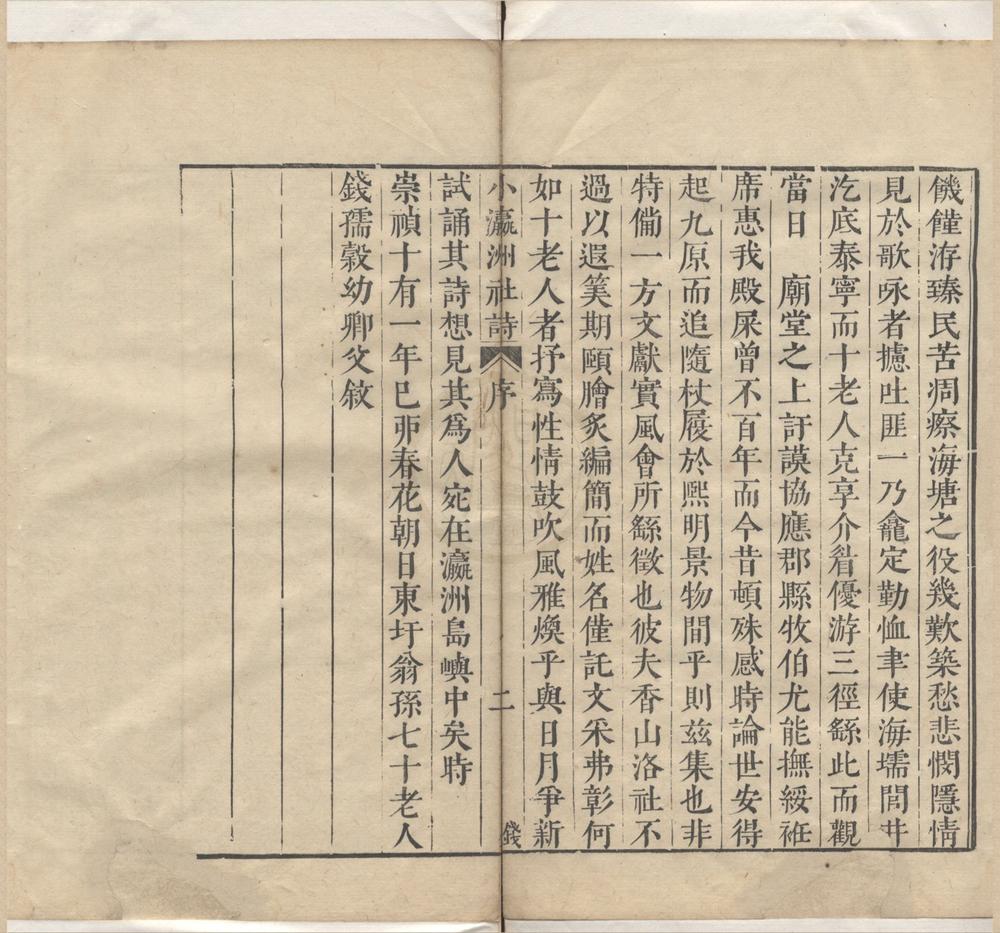 饑饉洊臻民苦凋瘵海塘之役幾歎築愁悲憫隱情
見於歌咏者攄吐匪一乃龕定勤恤聿使海壖閭井
汔底泰寧而十老人克享介眉優游三徑繇此而觀
當日　廟堂之上訏謨協應郡縣牧伯尤能撫綏袵
席惠我殿屎曾不百年而今昔頓殊感時論世安得
起九原而追隨杖履於熙明景物間乎則兹集也非
特備一方文獻實風會所繇徵也彼夫香山洛社不
過以遐筭期頤膾炙編簡而姓名僅託文采弗彰何
如十老人者抒寫性情鼓吹風雅煥乎與日月爭新
小瀛洲社詩　序　二　錢
試誦其詩想見其爲人宛在瀛洲島嶼中矣時
崇禎十有一年巳丣春花朝日東圩翁孫七十老人
錢孺穀幼卿父敘